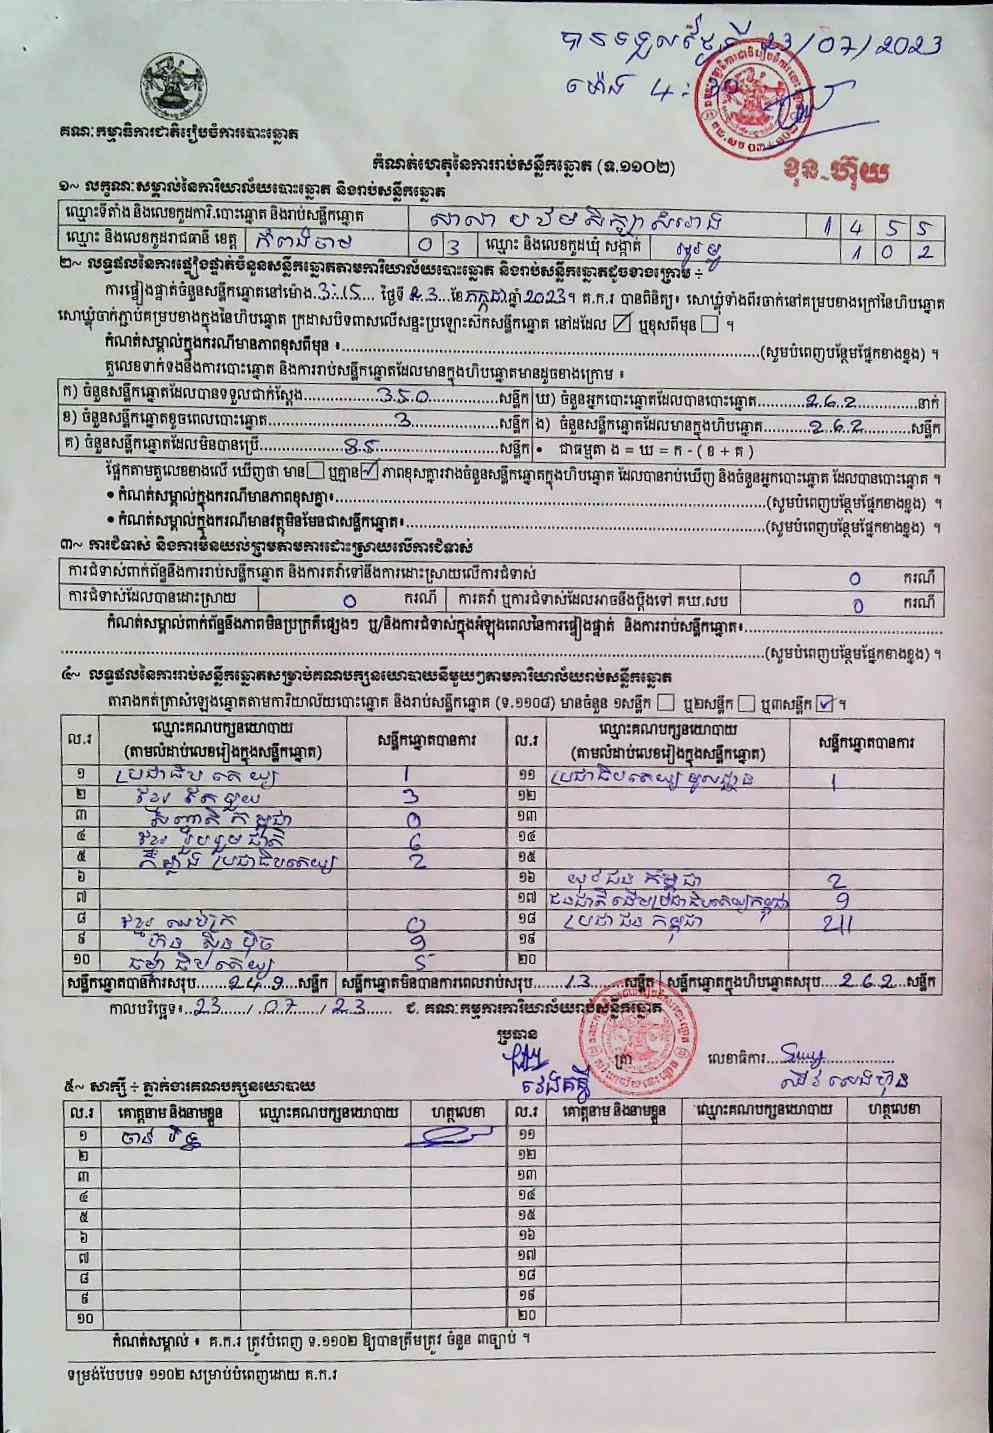 បានទទួលថ្ងៃទី 23/07/2023
ម៉ោង 4:30
គណៈកម្មាធិការជាតិរៀបចំការបោះឆ្នោត
ខុន ហ៊ុយ
កំណត់ហេតុនៃការរាប់សន្លឹកឆ្នោត (ទ.១១០២)
១~ លក្ខណៈសម្គាល់នៃការិយាល័យបោះឆ្នោត និងរាប់សន្លឹកឆ្នោត
ឈ្មោះទីតាំង និងលេខកូដការិ.បោះឆ្នោត និងរាប់សន្លឹកឆ្នោត សាលាបឋមសិក្សា 1 4 5 5
ឈ្មោះ និងលេខកូដរាជធានី ខេត្ត កំពង់ចាម 0 3 ឈ្មោះ និងលេខកូដឃុំ សង្កាត់ 1 0 2
២~ លទ្ធផលនៃការផ្ទៀងផ្ទាត់ចំនួនសន្លឹកឆ្នោតតាមការិយាល័យបោះឆ្នោត និងរាប់សន្លឹកឆ្នោតដូចខាងក្រោម ÷
ការផ្ទៀងផ្ទាត់ចំនួនសន្លឹកឆ្នោតនៅម៉ោង 3:15 ថ្ងៃទី 23 ខែ កក្កដា ឆ្នាំ 2023។ គ.ក.រ បានពិនិត្យ៖ សោឃ្លុំទាំងពីរចាក់នៅគម្របខាងក្រៅនៃហិបឆ្នោត
សោឃ្លុំចាក់ភ្ជាប់គម្របខាងក្នុងនៃហិបឆ្នោត ក្រដាសបិទពាសលើសន្ទះប្រឡោះស៊កសន្លឹកឆ្នោត នៅដដែល ☑ ឬខុសពីមុន ☐ ។
កំណត់សម្គាល់ក្នុងករណីមានភាពខុសពីមុន ៖ (សូមបំពេញបន្ថែមផ្នែកខាងខ្នង) ។
តួលេខទាក់ទងនឹងការបោះឆ្នោត និងការរាប់សន្លឹកឆ្នោតដែលមានក្នុងហិបឆ្នោតមានដូចខាងក្រោម ៖
ក) ចំនួនសន្លឹកឆ្នោតដែលបានទទួលជាក់ស្តែង 350 សន្លឹក ឃ) ចំនួនអ្នកបោះឆ្នោតដែលបានបោះឆ្នោត 262 នាក់
ខ) ចំនួនសន្លឹកឆ្នោតខូចពេលបោះឆ្នោត 3 សន្លឹក ង) ចំនួនសន្លឹកឆ្នោតដែលមានក្នុងហិបឆ្នោត 262 សន្លឹក
គ) ចំនួនសន្លឹកឆ្នោតដែលមិនបានប្រើ 85 សន្លឹក • ជាធម្មតា ង = ឃ = ក - ( ខ + គ )
ផ្អែកតាមតួលេខខាងលើ ឃើញថា មាន ☐ ឬគ្មាន ☑ ភាពខុសគ្នារវាងចំនួនសន្លឹកឆ្នោតក្នុងហិបឆ្នោត ដែលបានរាប់ឃើញ និងចំនួនអ្នកបោះឆ្នោត ដែលបានបោះឆ្នោត ។
• កំណត់សម្គាល់ក្នុងករណីមានភាពខុសគ្នា៖ (សូមបំពេញបន្ថែមផ្នែកខាងខ្នង) ។
• កំណត់សម្គាល់ក្នុងករណីមានវត្ថុមិនមែនជាសន្លឹកឆ្នោត៖ (សូមបំពេញបន្ថែមផ្នែកខាងខ្នង) ។
៣~ ការជំទាស់ និងការមិនយល់ព្រមតាមការដោះស្រាយលើការជំទាស់
ការជំទាស់ពាក់ព័ន្ធនឹងការរាប់សន្លឹកឆ្នោត និងការតវ៉ាទៅនឹងការដោះស្រាយលើការជំទាស់ 0 ករណី
ការជំទាស់ដែលបានដោះស្រាយ 0 ករណី ការតវ៉ា ឬការជំទាស់ដែលអាចនឹងប្តឹងទៅ គឃ.សប 0 ករណី
កំណត់សម្គាល់ពាក់ព័ន្ធនឹងភាពមិនប្រក្រតីផ្សេងៗ ឬ/និងការជំទាស់ក្នុងអំឡុងពេលនៃការផ្ទៀងផ្ទាត់ និងការរាប់សន្លឹកឆ្នោត៖
(សូមបំពេញបន្ថែមផ្នែកខាងខ្នង) ។
៤~ លទ្ធផលនៃការរាប់សន្លឹកឆ្នោតសម្រាប់គណបក្សនយោបាយនីមួយៗតាមការិយាល័យរាប់សន្លឹកឆ្នោត
តារាងកត់ត្រាសំឡេងឆ្នោតតាមការិយាល័យបោះឆ្នោត និងរាប់សន្លឹកឆ្នោត (ទ.១១០៨) មានចំនួន ១សន្លឹក ☐ ឬ២សន្លឹក ☐ ឬ៣សន្លឹក ☑ ។
ល.រ ឈ្មោះគណបក្សនយោបាយ (តាមលំដាប់លេខរៀងក្នុងសន្លឹកឆ្នោត) សន្លឹកឆ្នោតបានការ ល.រ ឈ្មោះគណបក្សនយោបាយ (តាមលំដាប់លេខរៀងក្នុងសន្លឹកឆ្នោត) សន្លឹកឆ្នោតបានការ
១ ប្រជាធិបតេយ្យ 1 ១១ ប្រជាធិបតេយ្យមូលដ្ឋាន 1
២ ខ្មែរឥតឈ្មួយ 3 ១២
៣ សញ្ជាតិកម្ពុជា 0 ១៣
៤ ខ្មែររួបរួមជាតិ 6 ១៤
៥ កម្លាំងប្រជាធិបតេយ្យ 2 ១៥
៦ ១៦ យុវជនកម្ពុជា 2
៧ ១៧ ជនជាតិដើមប្រជាធិបតេយ្យកម្ពុជា 9
៨ ខ្មែរឈប់ក្រ 0 ១៨ ប្រជាជនកម្ពុជា 211
៩ ហ៊្វុនស៊ិនប៉ិច 9 ១៩
១០ ធម្មាធិបតេយ្យ 5 ២០
សន្លឹកឆ្នោតបានការសរុប 249 សន្លឹក សន្លឹកឆ្នោតមិនបានការពេលរាប់សរុប 13 សន្លឹក សន្លឹកឆ្នោតក្នុងហិបឆ្នោតសរុប 262 សន្លឹក
កាលបរិច្ឆេទ៖ 23 / 07 / 23 ជ. គណៈកម្មការការិយាល័យរាប់សន្លឹកឆ្នោត
ប្រធាន
ត្រា លេខាធិការ
៥~ សាក្សី ÷ ភ្នាក់ងារគណបក្សនយោបាយ
ល.រ គោត្តនាម និងនាមខ្លួន ឈ្មោះគណបក្សនយោបាយ ហត្ថលេខា ល.រ គោត្តនាម និងនាមខ្លួន ឈ្មោះគណបក្សនយោបាយ ហត្ថលេខា
១ ១១
២ ១២
៣ ១៣
៤ ១៤
៥ ១៥
៦ ១៦
៧ ១៧
៨ ១៨
៩ ១៩
១០ ២០
កំណត់សម្គាល់ ៖ គ.ក.រ ត្រូវបំពេញ ទ.១១០២ ឱ្យបានត្រឹមត្រូវ ចំនួន ៣ច្បាប់ ។
ទម្រង់បែបបទ ១១០២ សម្រាប់បំពេញដោយ គ.ក.រ